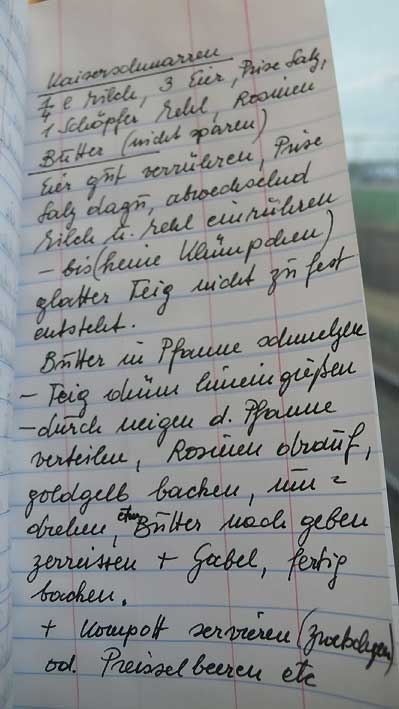 Kaiserschmarren
1/4 l Milch, 3 Eier, Prise Salz,
1 Schöpfer Mehl, Rosinen
Butter (nicht sparen)
Eier gut verrühren, Prise
Salz dazu, abwechselnd
Milch u. Mehl einrühren
- bis (keine Klümpchen)
glatter Teig nicht zu fest
entsteht.
Butter in Pfanne schmelzen
- Teig dünn hineingießen
- durch neigen d. Pfanne
verteilen, Rosinen obrauf,
goldgelb backen, um=
drehen, etwas Butter nach geben
zerreissen + Gabel, fertig
backen.
+ Kompott servieren (Zwetschgen)
od. Preisselbeeren etc